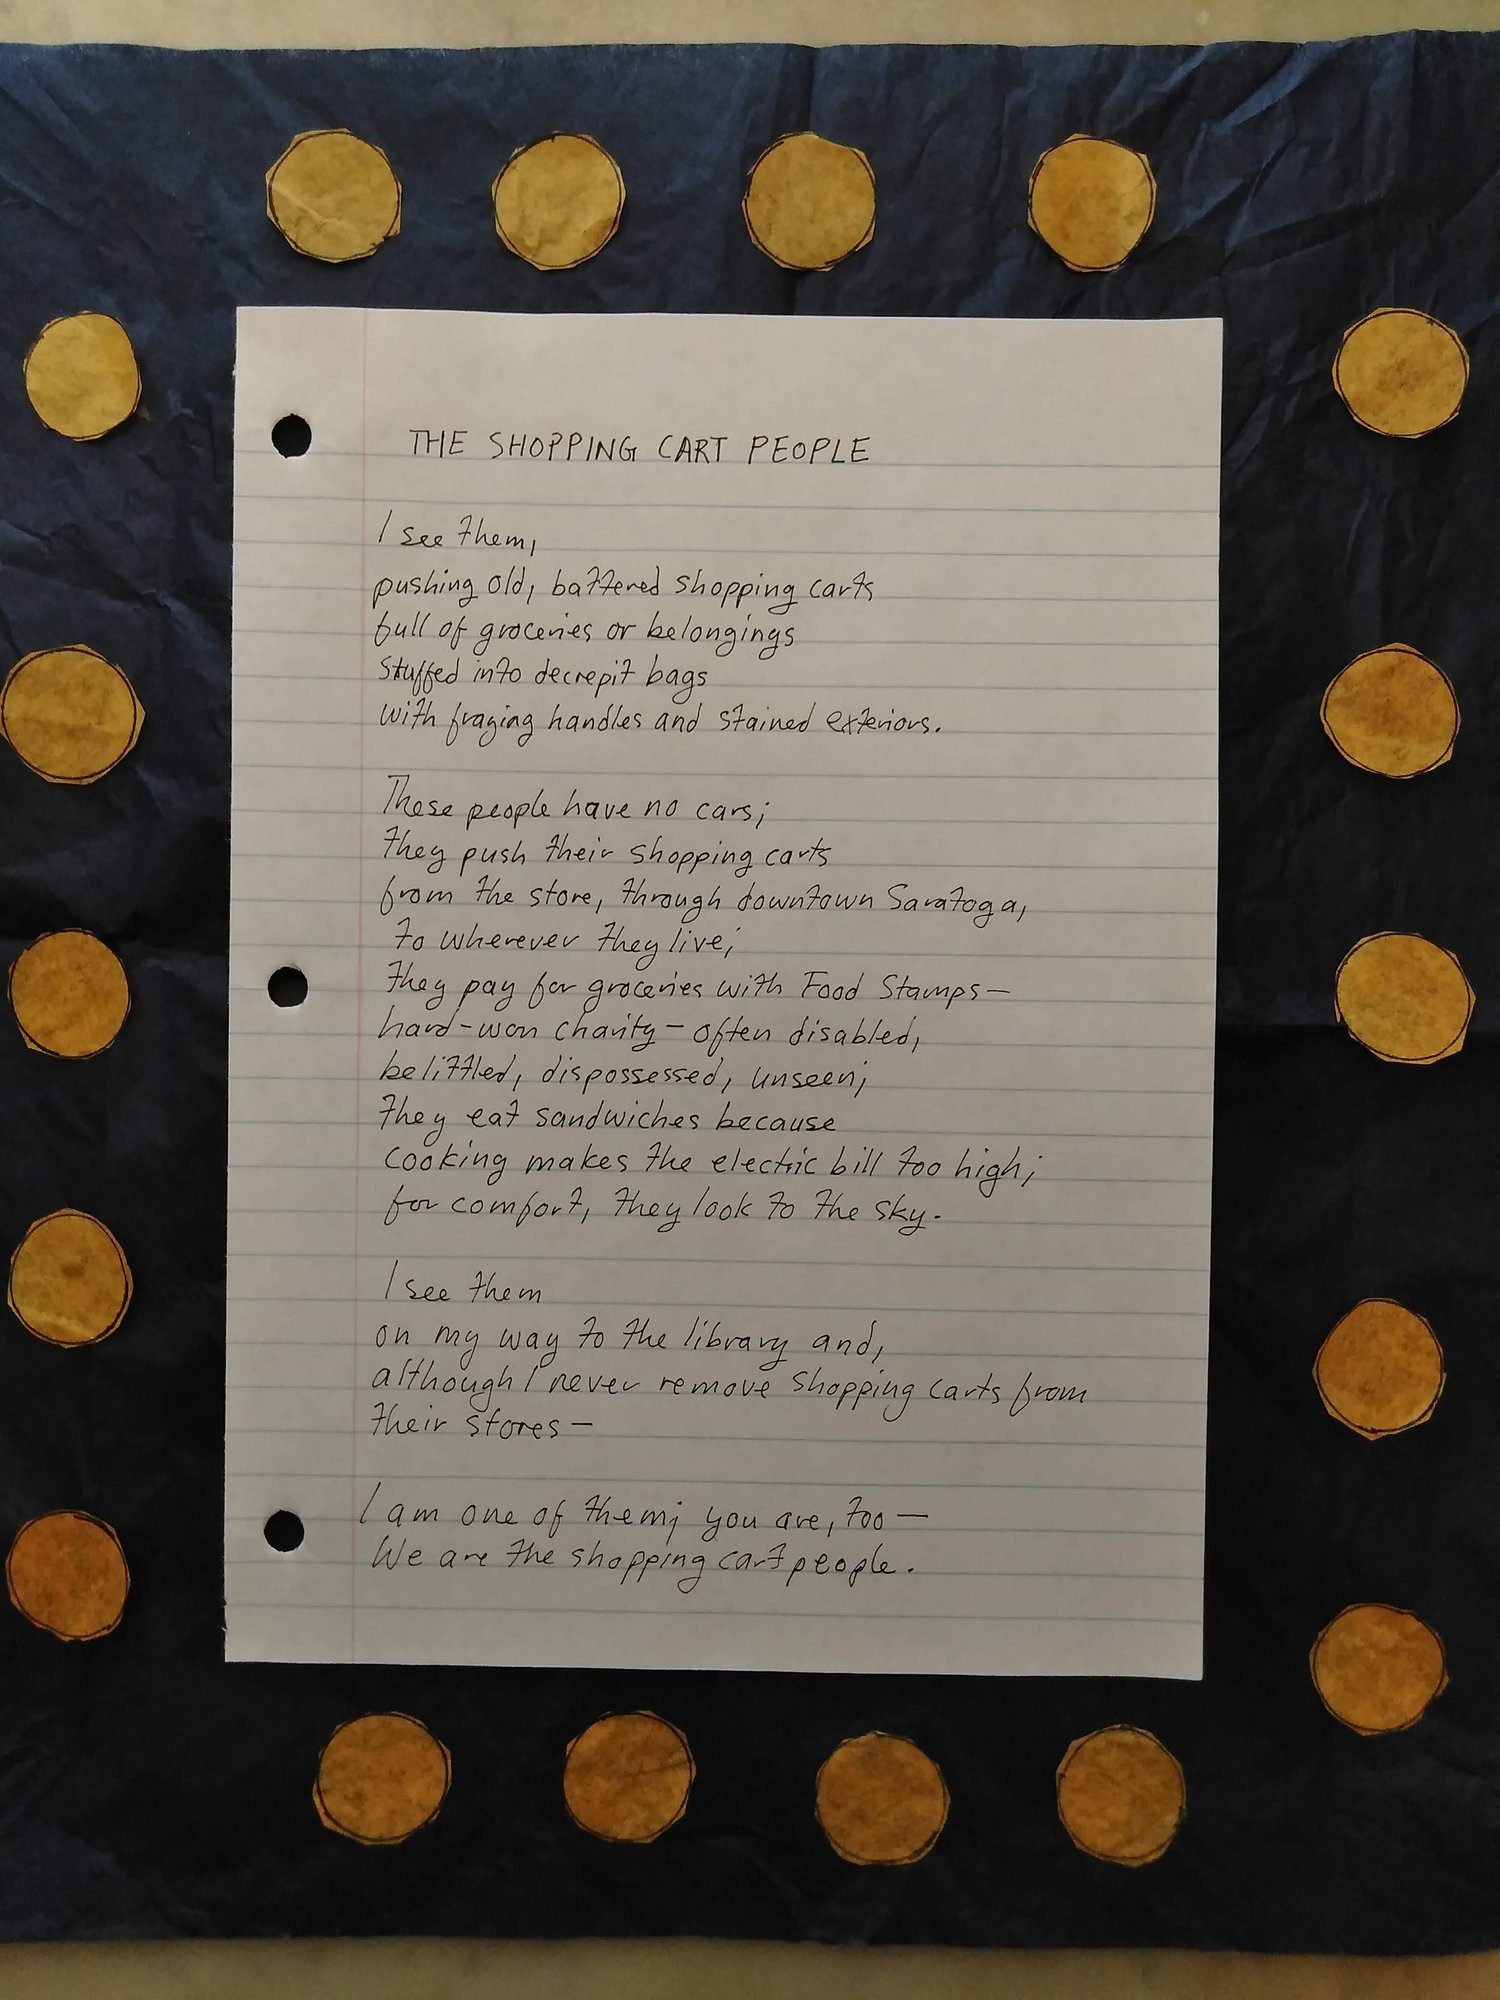 THE SHOPPING CART PEOPLE
I see them,
pushing old, battered shopping carts
full of groceries or belongings
stuffed into decrepit bags
with fraying handles and stained exteriors.
These people have no cars;
they push their shopping carts
from the store, through downtown Saratoga,
to wherever they live;
they pay for groceries with Food Stamps—
hard-won charity—often disabled,
belittled, dispossessed, unseen;
they eat sandwiches because
cooking makes the electric bill too high;
for comfort, they look to the sky.
I see them
on my way to the library and,
although I never remove shopping carts from
their stores—
I am one of them; you are, too—
We are the shopping cart people.